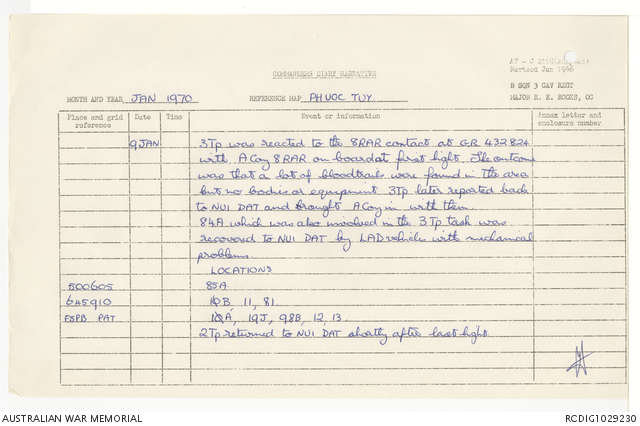 Revised Jan 1966
COMMANDERS DIARY NARRATIVE
B SQN 3 CAV REGT
MONTH AND YEAR JAN 1970 REFERENCE MAP PHUOC TUY MAJOR R. E. ROOKS, OC
Place and grid reference Date Time Event or information Annex letter and enclosure number
9 JAN 3 Tp was reacted to the 8RAR contact at GR 432824
with A Coy 8 RAR on board at first light. The outcome
was that a lot of bloodtrails were found in the area
but no bodies or equipment 3Tp later reported back
to NUI DAT and brought A Coy in with them.
84A which was also involved in the 3 Tp task was
recoverd to NUI DAT by LAD vehicles with mechanical
problems.
LOCATIONS
500605 85A
645910 10B 11, 81.
FSPB PAT 10A, 19J, 98B, 12, 13.
2Tp returned to NUI DAT shortly after last light
AUSTRALIAN WAR MEMORIAL RCDIG1029230